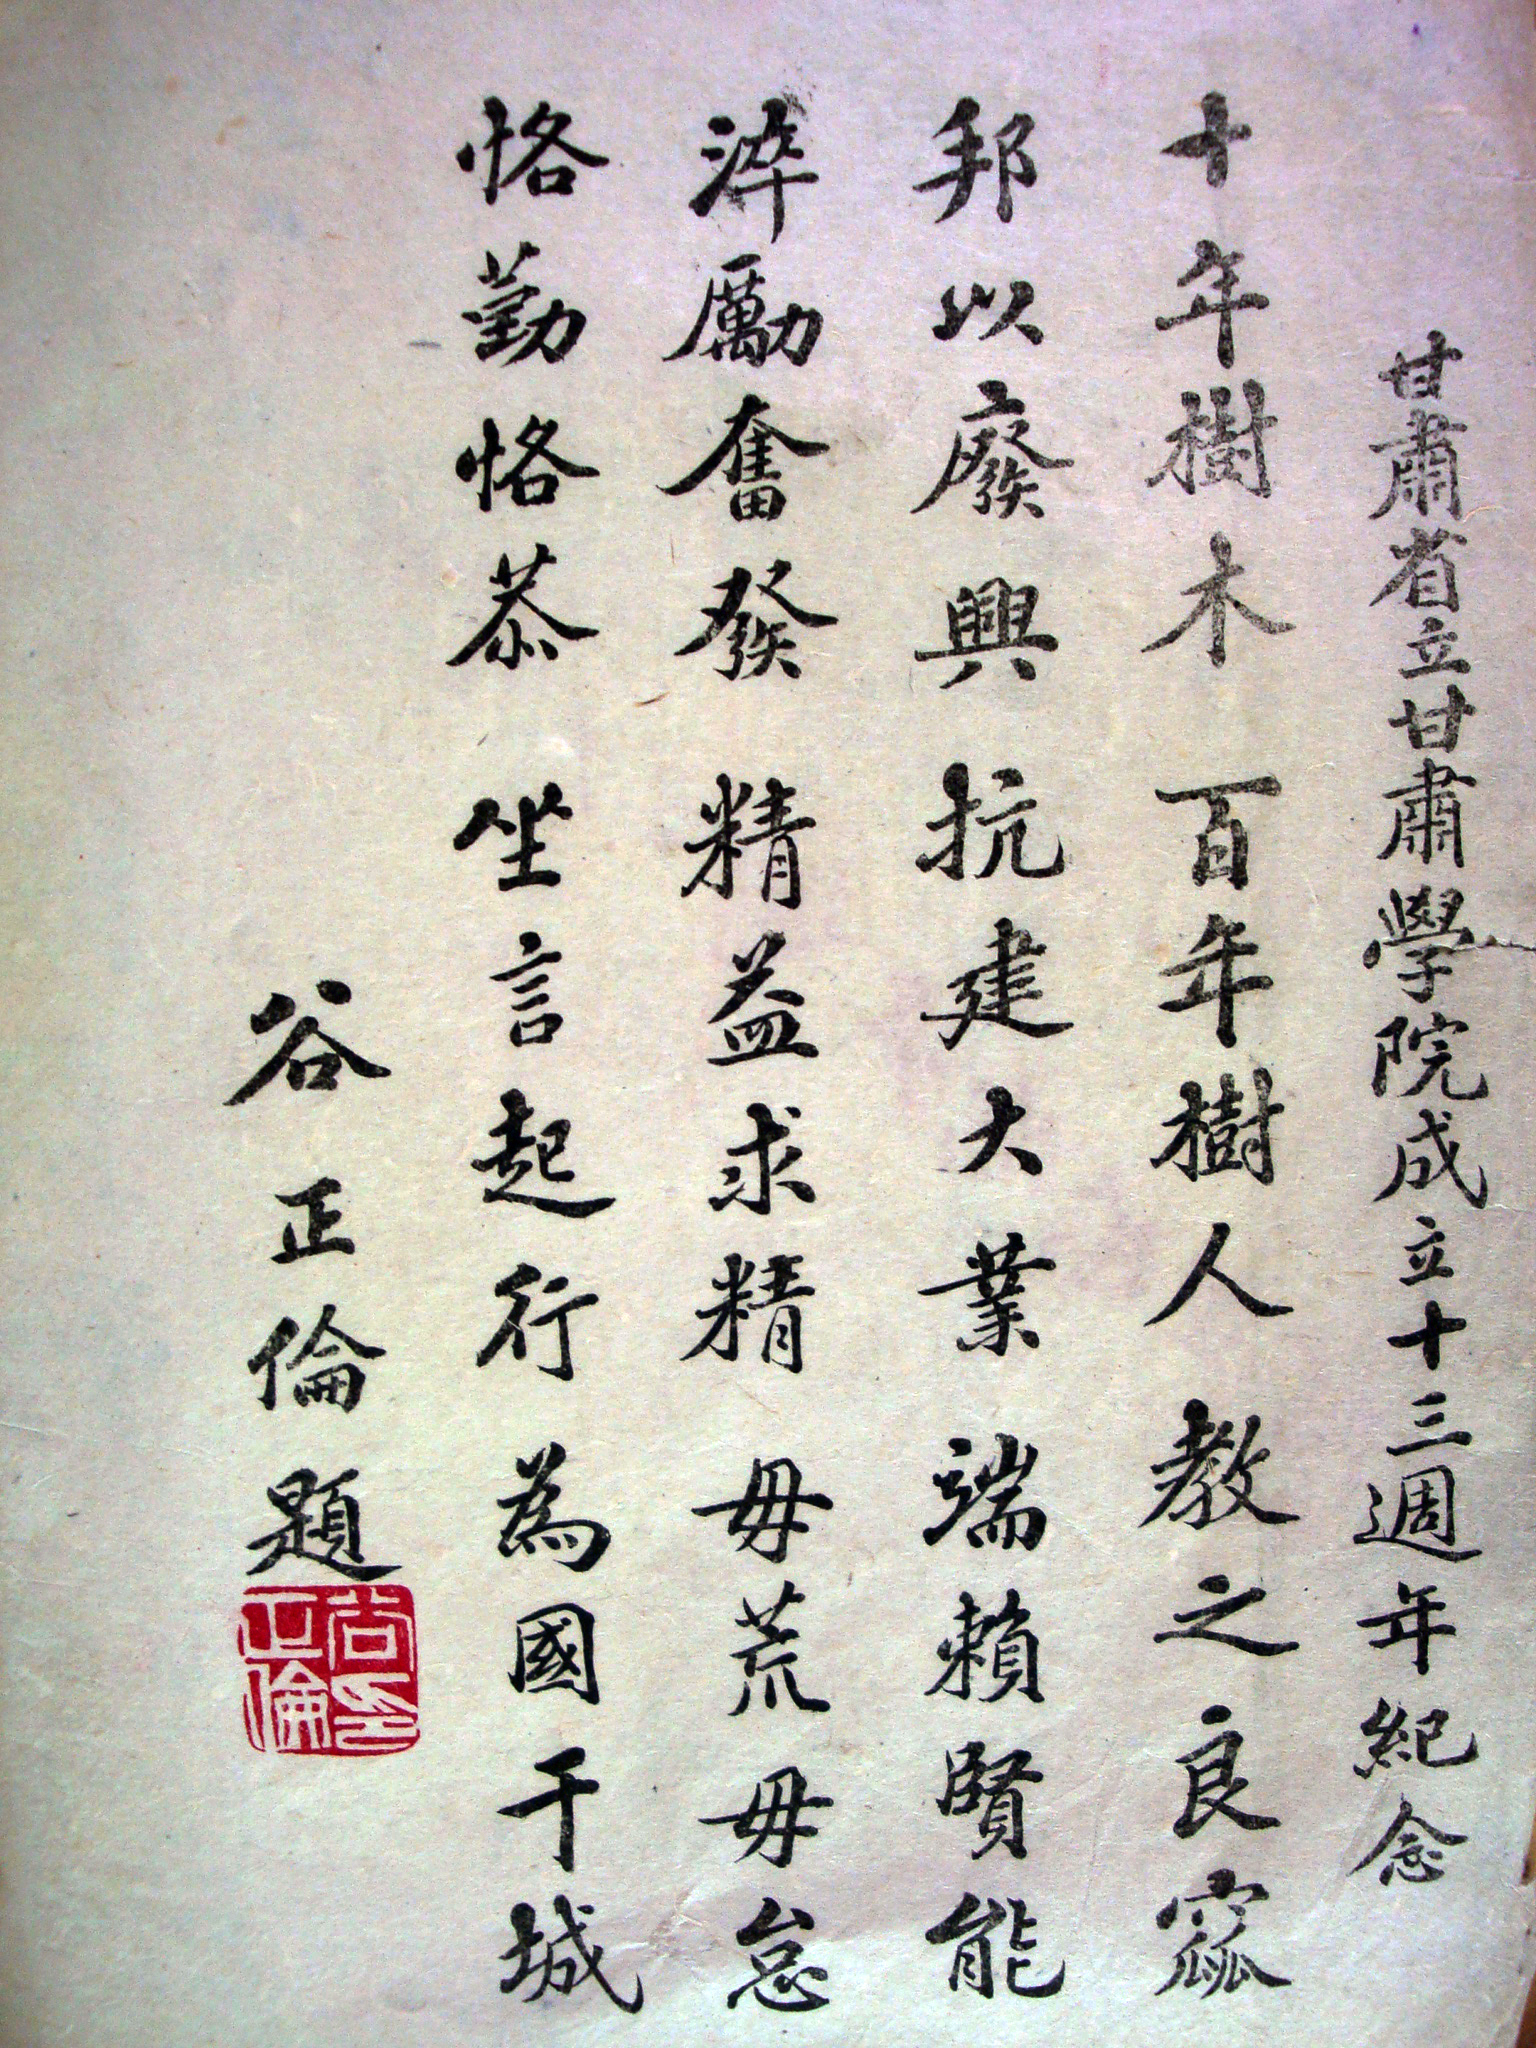 甘肅省立甘肅學院成立十三週年紀念
十年樹木 百年樹人 教之良窳
邦以廢興 抗建大業 端賴賢能
淬厲奮發 精益求精 毋荒毋怠
恪勤恪恭 坐言起行 為國干城
谷正倫題